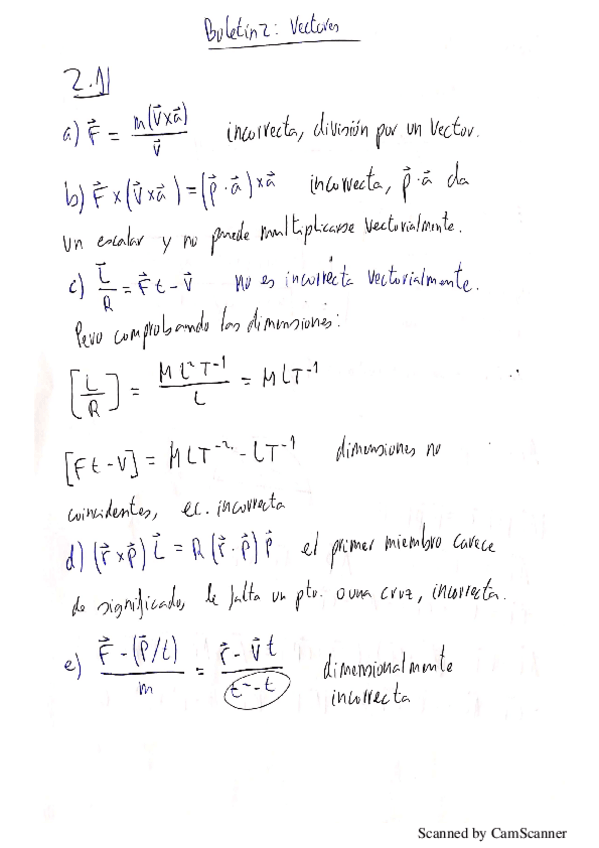 Boletín 2: Vectores
2.1
a) F⃗ = m(v⃗×a⃗)/v⃗ incorrecta, división por un vector.
b) F⃗ × (v⃗×a⃗) = (p⃗ · a⃗) × a⃗ incorrecta, p⃗ · a⃗ da
un escalar y no puede multiplicarse vectorialmente.
c) L⃗/R = F⃗ t - v⃗ No es incorrecta vectorialmente.
Pero comprobando las dimensiones:
[L/R] = M L² T⁻¹ / L = M L T⁻¹
[Ft - V] = M L T⁻² - L T⁻¹ dimensiones no
coincidentes, ec. incorrecta
d) (r⃗ × p⃗) L⃗ = R (r⃗ · p⃗) p⃗ el primer miembro carece
de significado, le falta un pto. o una cruz, incorrecta.
e) F⃗ - (p⃗/t) / m = r⃗ - v⃗ t / t⁻ - t dimensionalmente
incorrecta
Scanned by CamScanner